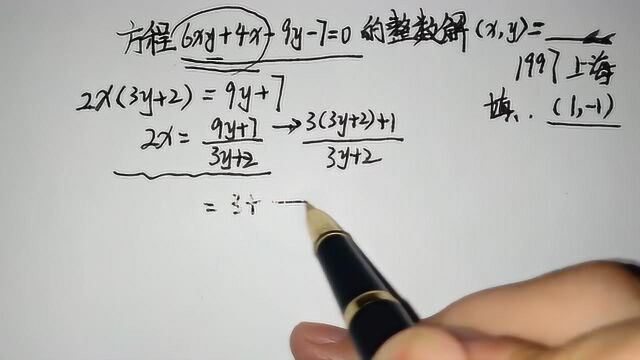 方程 6xy+4x-9y-7=0 的整数解 (x,y)=____
1997上海
填.. (1,-1)
2x(3y+2) = 9y+7
2x = \frac{9y+7}{3y+2} → \frac{3(3y+2)+1}{3y+2}
= 3+